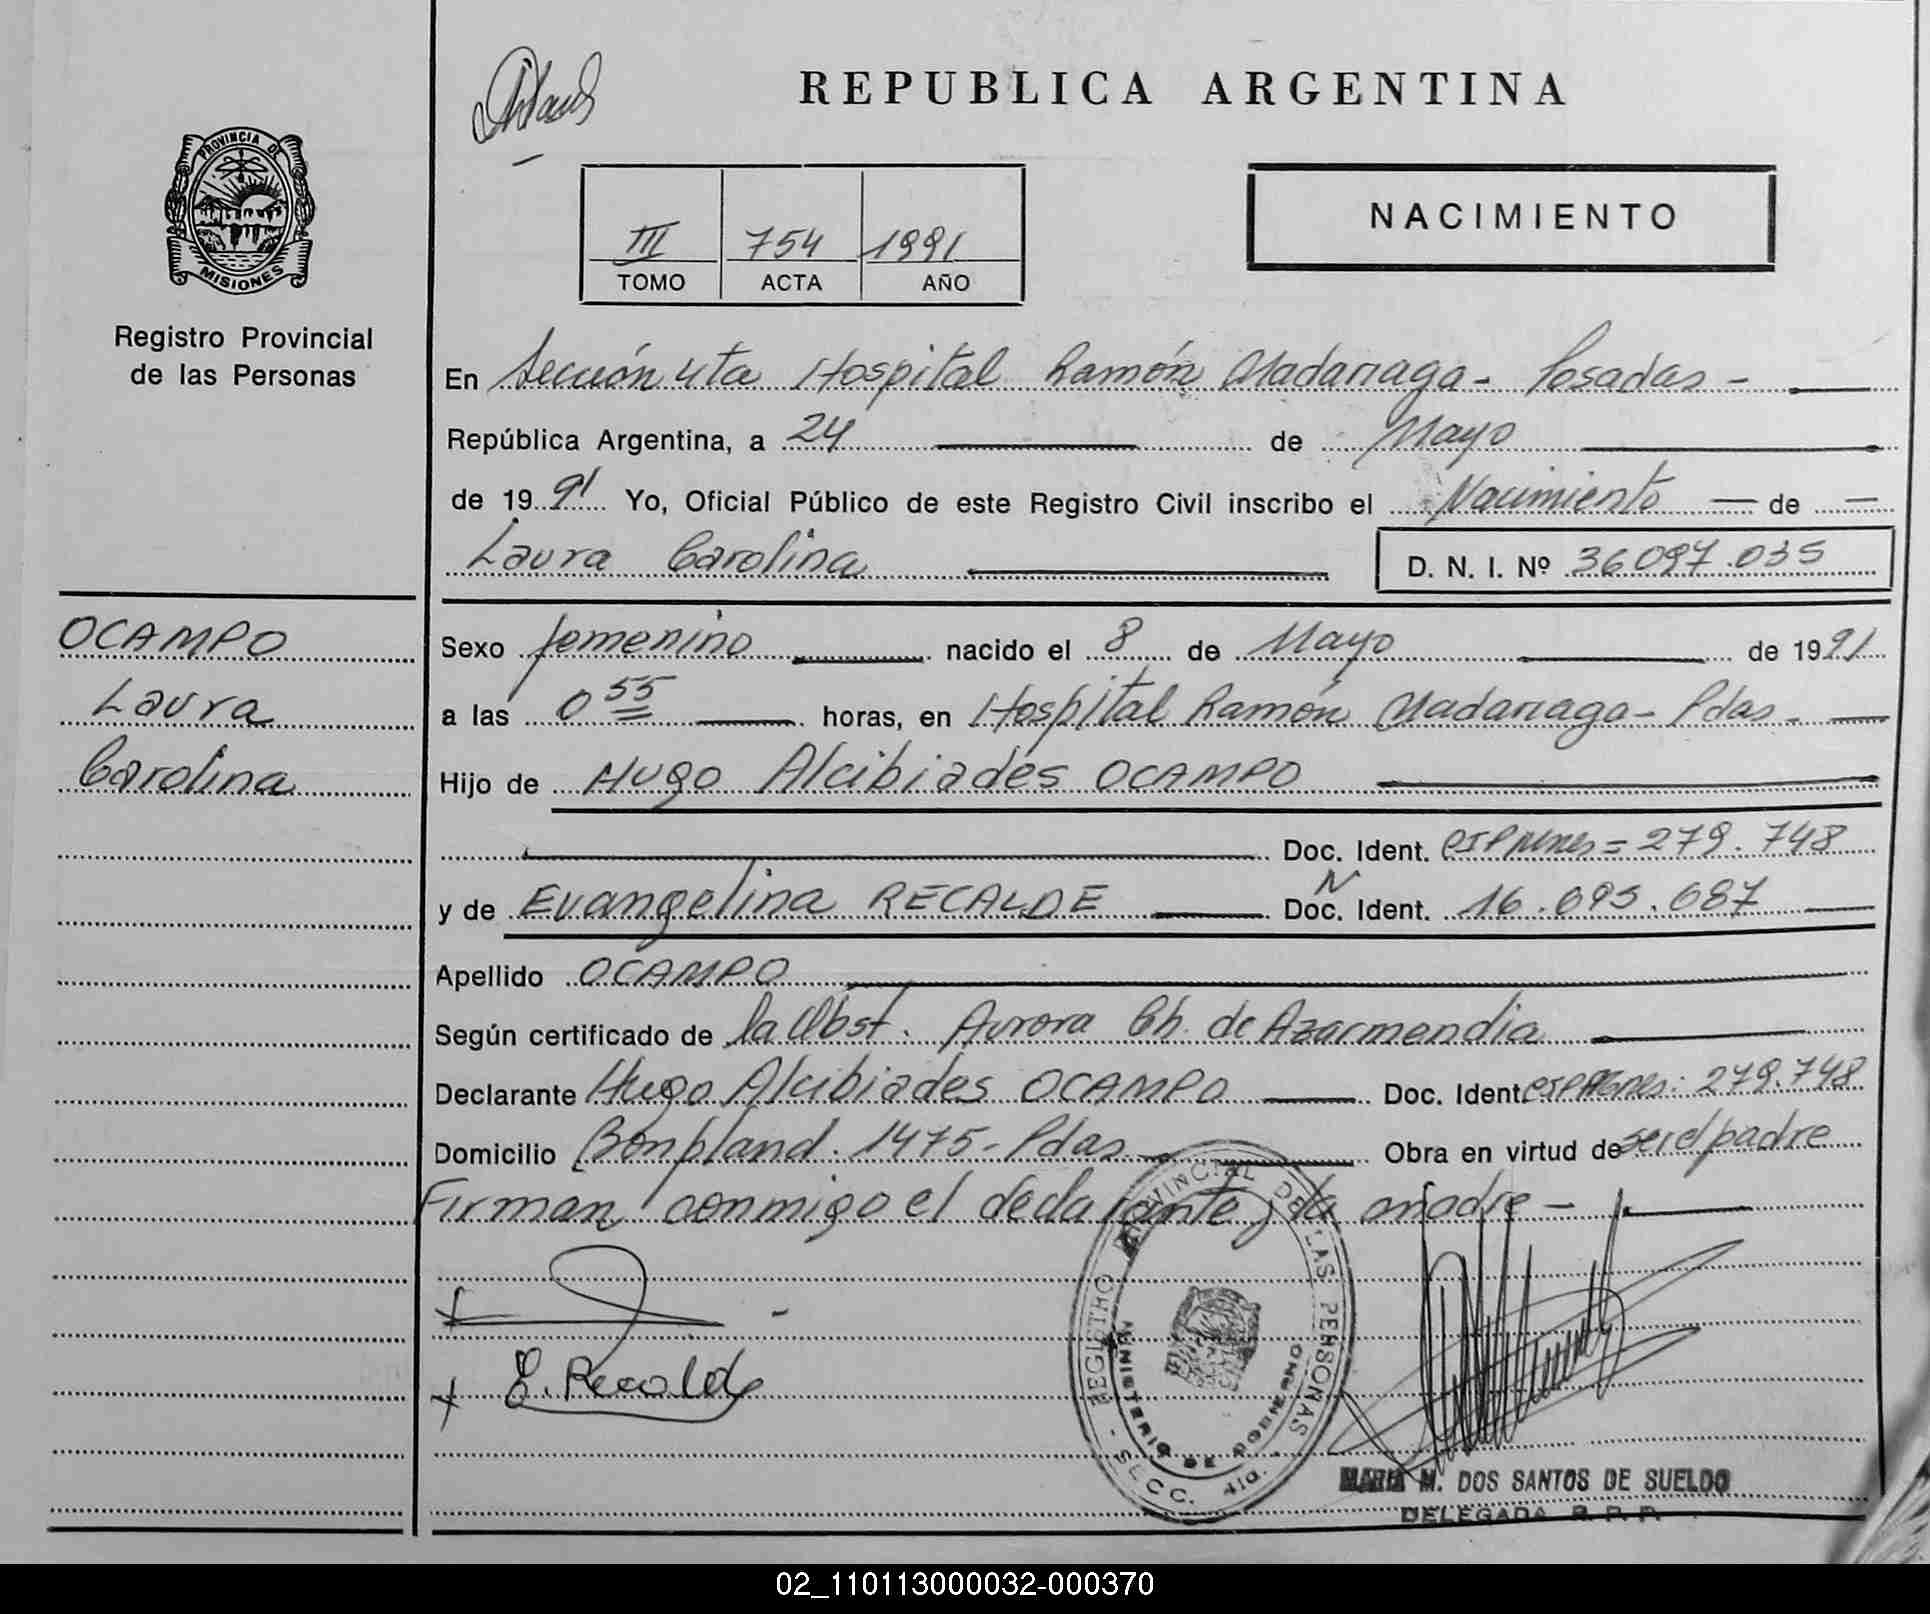 REPUBLICA ARGENTINA
PROVINCIA DE
MISIONES
Registro Provincial
de las Personas
III 754 1991
TOMO ACTA AÑO
NACIMIENTO
En Sección 4ta Hospital Ramón Madariaga - Posadas -
República Argentina, a 24 de Mayo
de 1991 Yo, Oficial Público de este Registro Civil inscribo el Nacimiento de
Laura Carolina D. N. I. Nº 36097.035
OCAMPO
Laura
Carolina
Sexo femenino nacido el 8 de Mayo de 1991
a las 0 55 horas, en Hospital Ramón Madariaga - Pdas -
Hijo de Hugo Alcibiades OCAMPO
Doc. Ident. = 279.748
y de Evangelina RECALDE Doc. Ident. 16.095.687
Apellido OCAMPO
Según certificado de la Obst. Aurora Ch. de Azarmendia
Declarante Hugo Alcibiades OCAMPO Doc. Ident. : 279.748
Domicilio Bonpland. 1475 - Pdas Obra en virtud de ser el padre
Firman conmigo el declarante y la madre -
E. Recalde
REGISTRO PROVINCIAL DE LAS PERSONAS
MINISTERIO DE GOBIERNO
- SECC. 4ta. -
MARIA M. DOS SANTOS DE SUELDO
DELEGADA R. P. P.
02_110113000032-000370